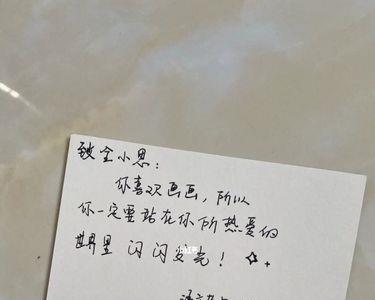 致全小思:
你喜欢画画,所以
你一定要站在你所热爱的
世界里 闪闪发亮!